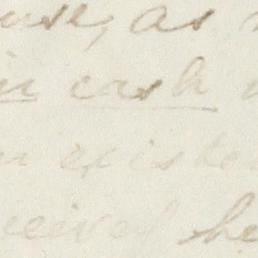 use, as
in cash
in existe
ceived he